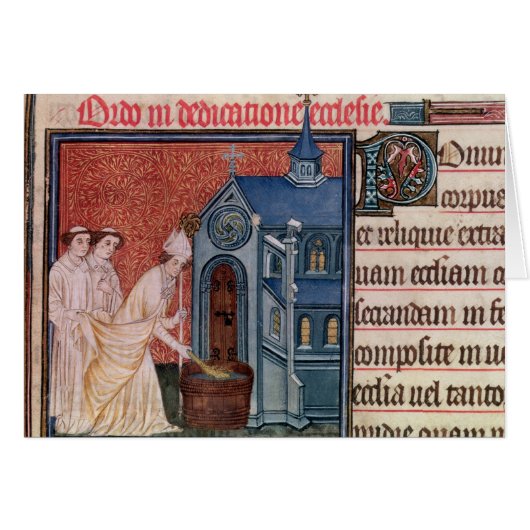 Ordo in dedicatione ecclesie.
Ponunt
corpus
et reliquie extra
quam ecclīam
secrandam in
composite in
ecclīa uel tanto